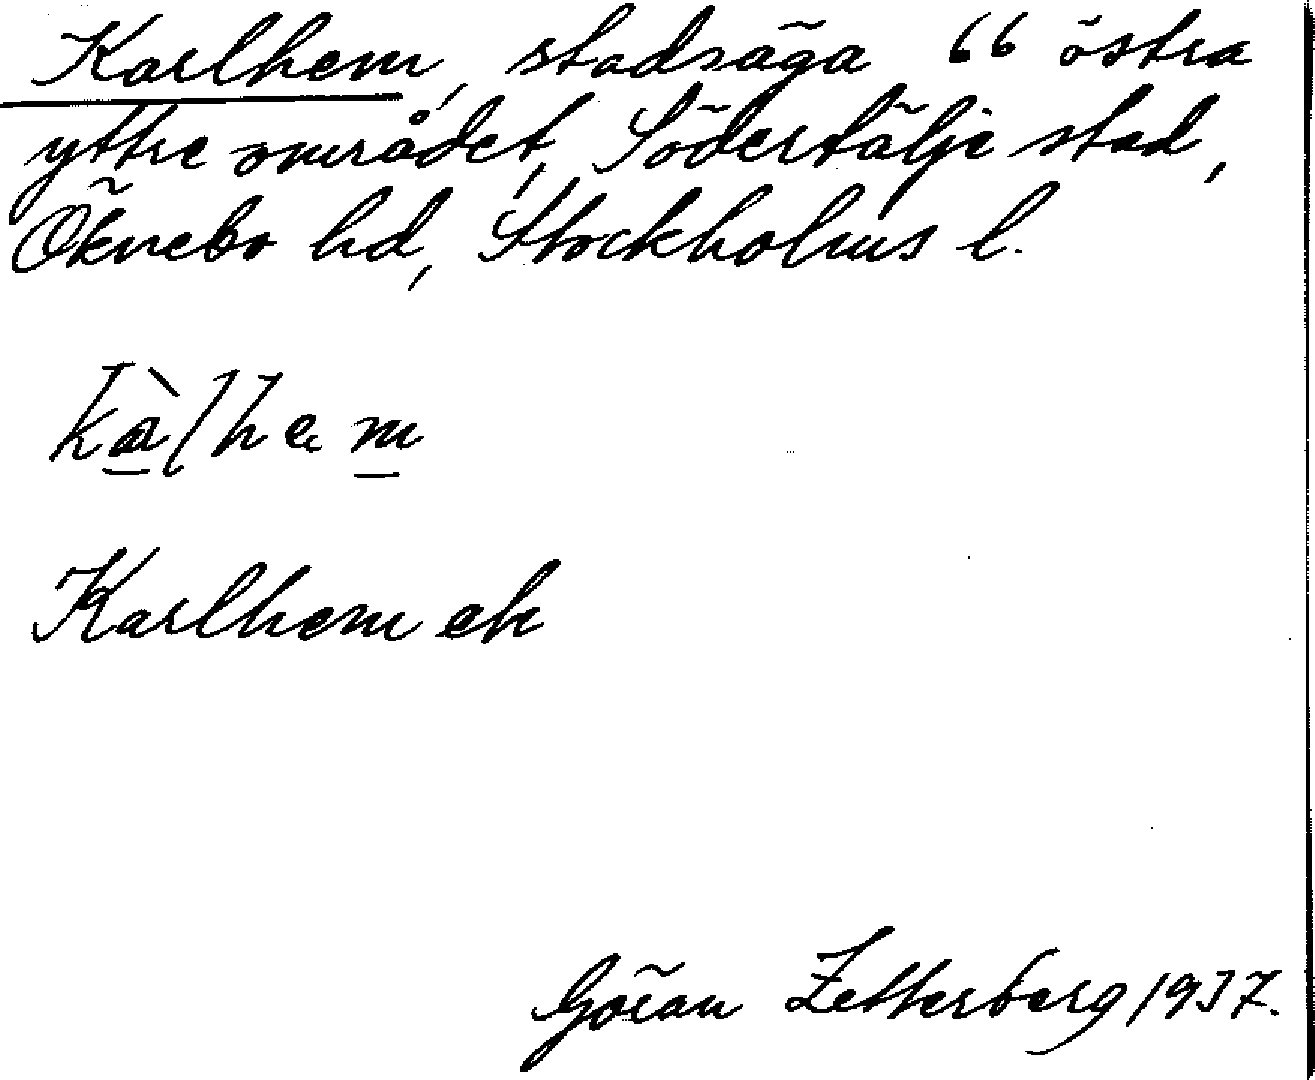 Karlhem, stadsäga 66 östra
yttre området, Södertälje stad,
Öknebo hd, Stockholms l.
kàlhem
Karlhem ek
Göran Zetterberg 1937.